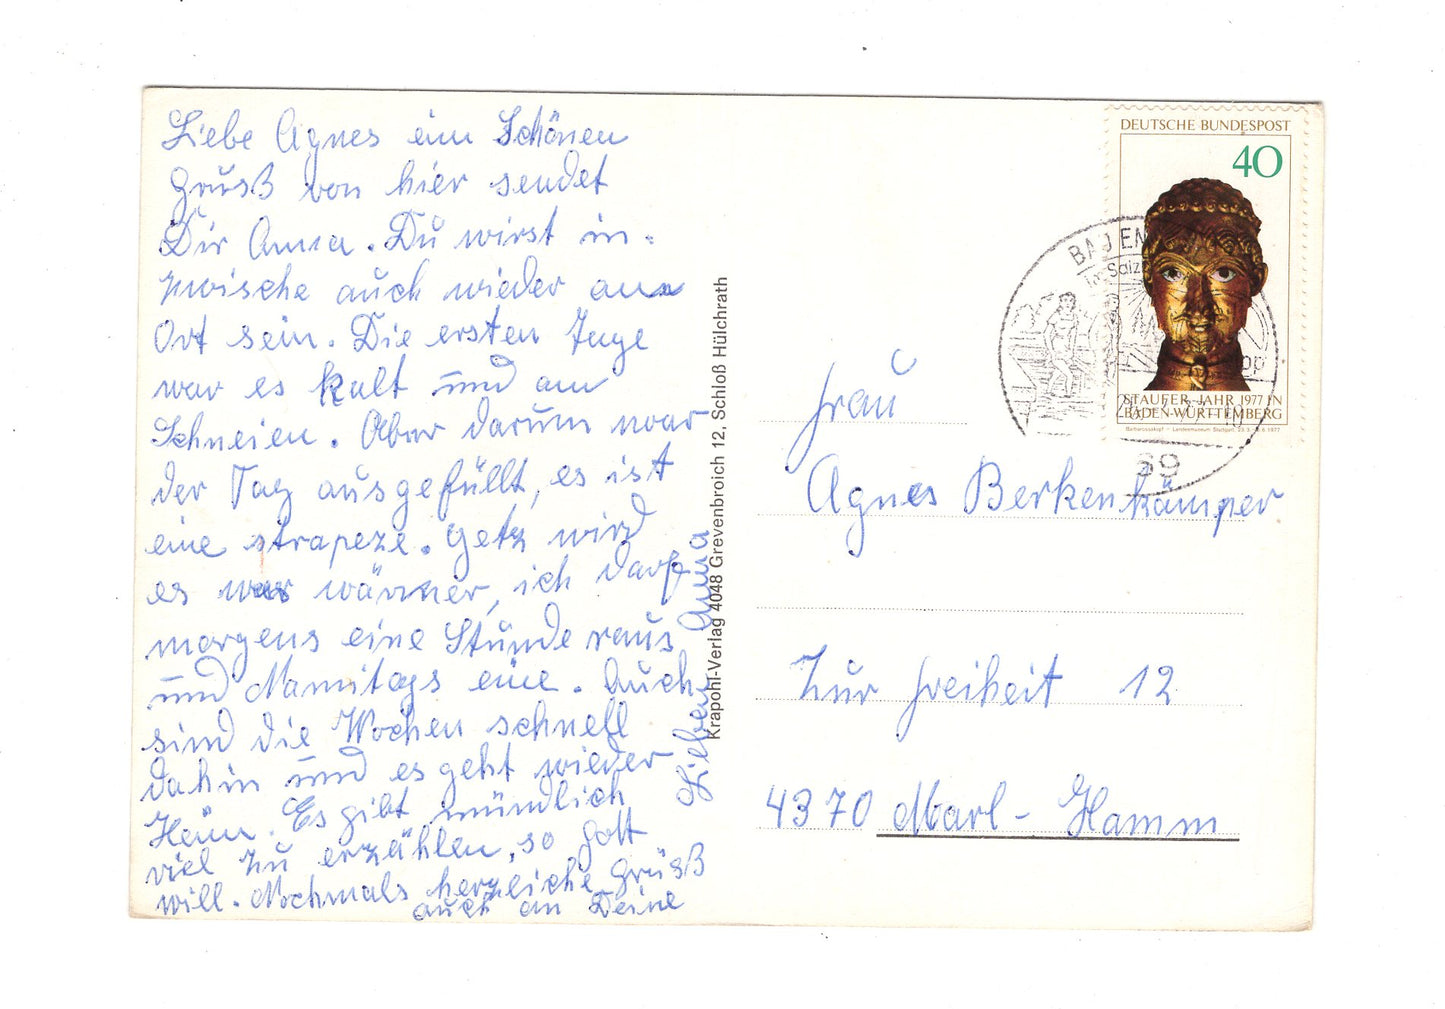 Liebe Agnes ein Schönen
Gruß von hier sendet
Dir Anna. Du wirst in-
zwische auch wieder an
Ort sein. Die ersten Tage
war es kalt und am
Schneien. Aber darum war
der Tag ausgefüllt, es ist
eine strapeze. Getz wird
es wärmer, ich darf
morgens eine Stunde raus
und Namitags eine. Auch
sind die Wochen schnell
dahin und es geht wieder
Heim. Es gibt mündlich
viel zu erzählen, so Gott
will. Nochmals herzliche Grüß
auch an Deine
Lieben Anna
Krapohl-Verlag 4048 Grevenbroich 12, Schloß Hülchrath
DEUTSCHE BUNDESPOST
40
STAUFER-JAHR 1977 IN
BADEN-WÜRTTEMBERG
Barbarossakopf – Landesmuseum Stuttgart
BAD EM
im Salz
59
Frau
Agnes Berkenkämper
Zur Freiheit 12
4370 Marl-Hamm